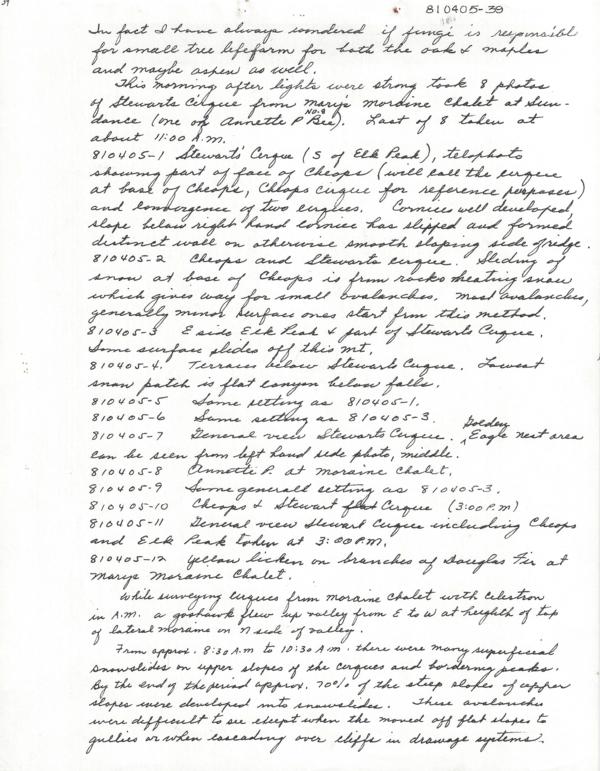 39
810405-39
In fact I have always wondered if fungi is responsible
for small tree lifeform for both the oak & maples
and maybe aspen as well.
This morning after lights were strong took 8 photos
of Stewarts Cirque from marys moraine Chalet at Sun-
dance (one of Annette P No.8 Bee). Last of 8 taken at
about 11:00 A.M.
810405-1 Stewarts' Cirque (S of Elk Peak), telephoto
showing part of face of Cheops (will call the cirque
at base of Cheops, Cheops cirque for reference purposes)
and convergence of two cirques. Cornices well developed,
slope below right hand cornice has slipped and formed
distinct wall on otherwise smooth sloping side of ridge.
810405-2 Cheops and Stewarts cirque. Sliding of
snow at base of Cheops is from rocks heating snow
which gives way for small avalanches. Most avalanches,
generally minor surface ones start from this method.
810405-3 E side Elk Peak & part of Stewarts Cirque.
Some surface slides off this mt.
810405-4. Terraces below Stewarts Cirque. Lowest
snow patch is flat canyon below falls.
810405-5 Same setting as 810405-1.
810405-6 Same setting as 810405-3.
810405-7 General view Stewarts Cirque. Golden Eagle nest area
can be seen from left hand side photo, middle.
810405-8 Annette P. at Moraine Chalet.
810405-9 Same generall setting as 810405-3.
810405-10 Cheops & Stewart Cirque (3:00 P.M)
810405-11 General view Stewart Cirque including Cheops
and Elk Peak taken at 3:00 P.M.
810405-12 Yellow licken on branches of Douglas Fir at
Marys Moraine Chalet.
While surveying cirques from moraine chalet with Celestron
in A.M. a goshawk flew up valley from E to W at heighth of top
of lateral moraine on N side of valley.
From approx. 8:30 A.M to 10:30 A.M. there were many superficial
snowslides on upper slopes of the cirques and bordering peaks.
By the end of the period approx. 70% of the steep slopes of upper
slopes were developed into snowslides. These avalanches
were difficult to see except when the moved off flat slopes to
gullies or when cascading over cliffs in drawage systems.